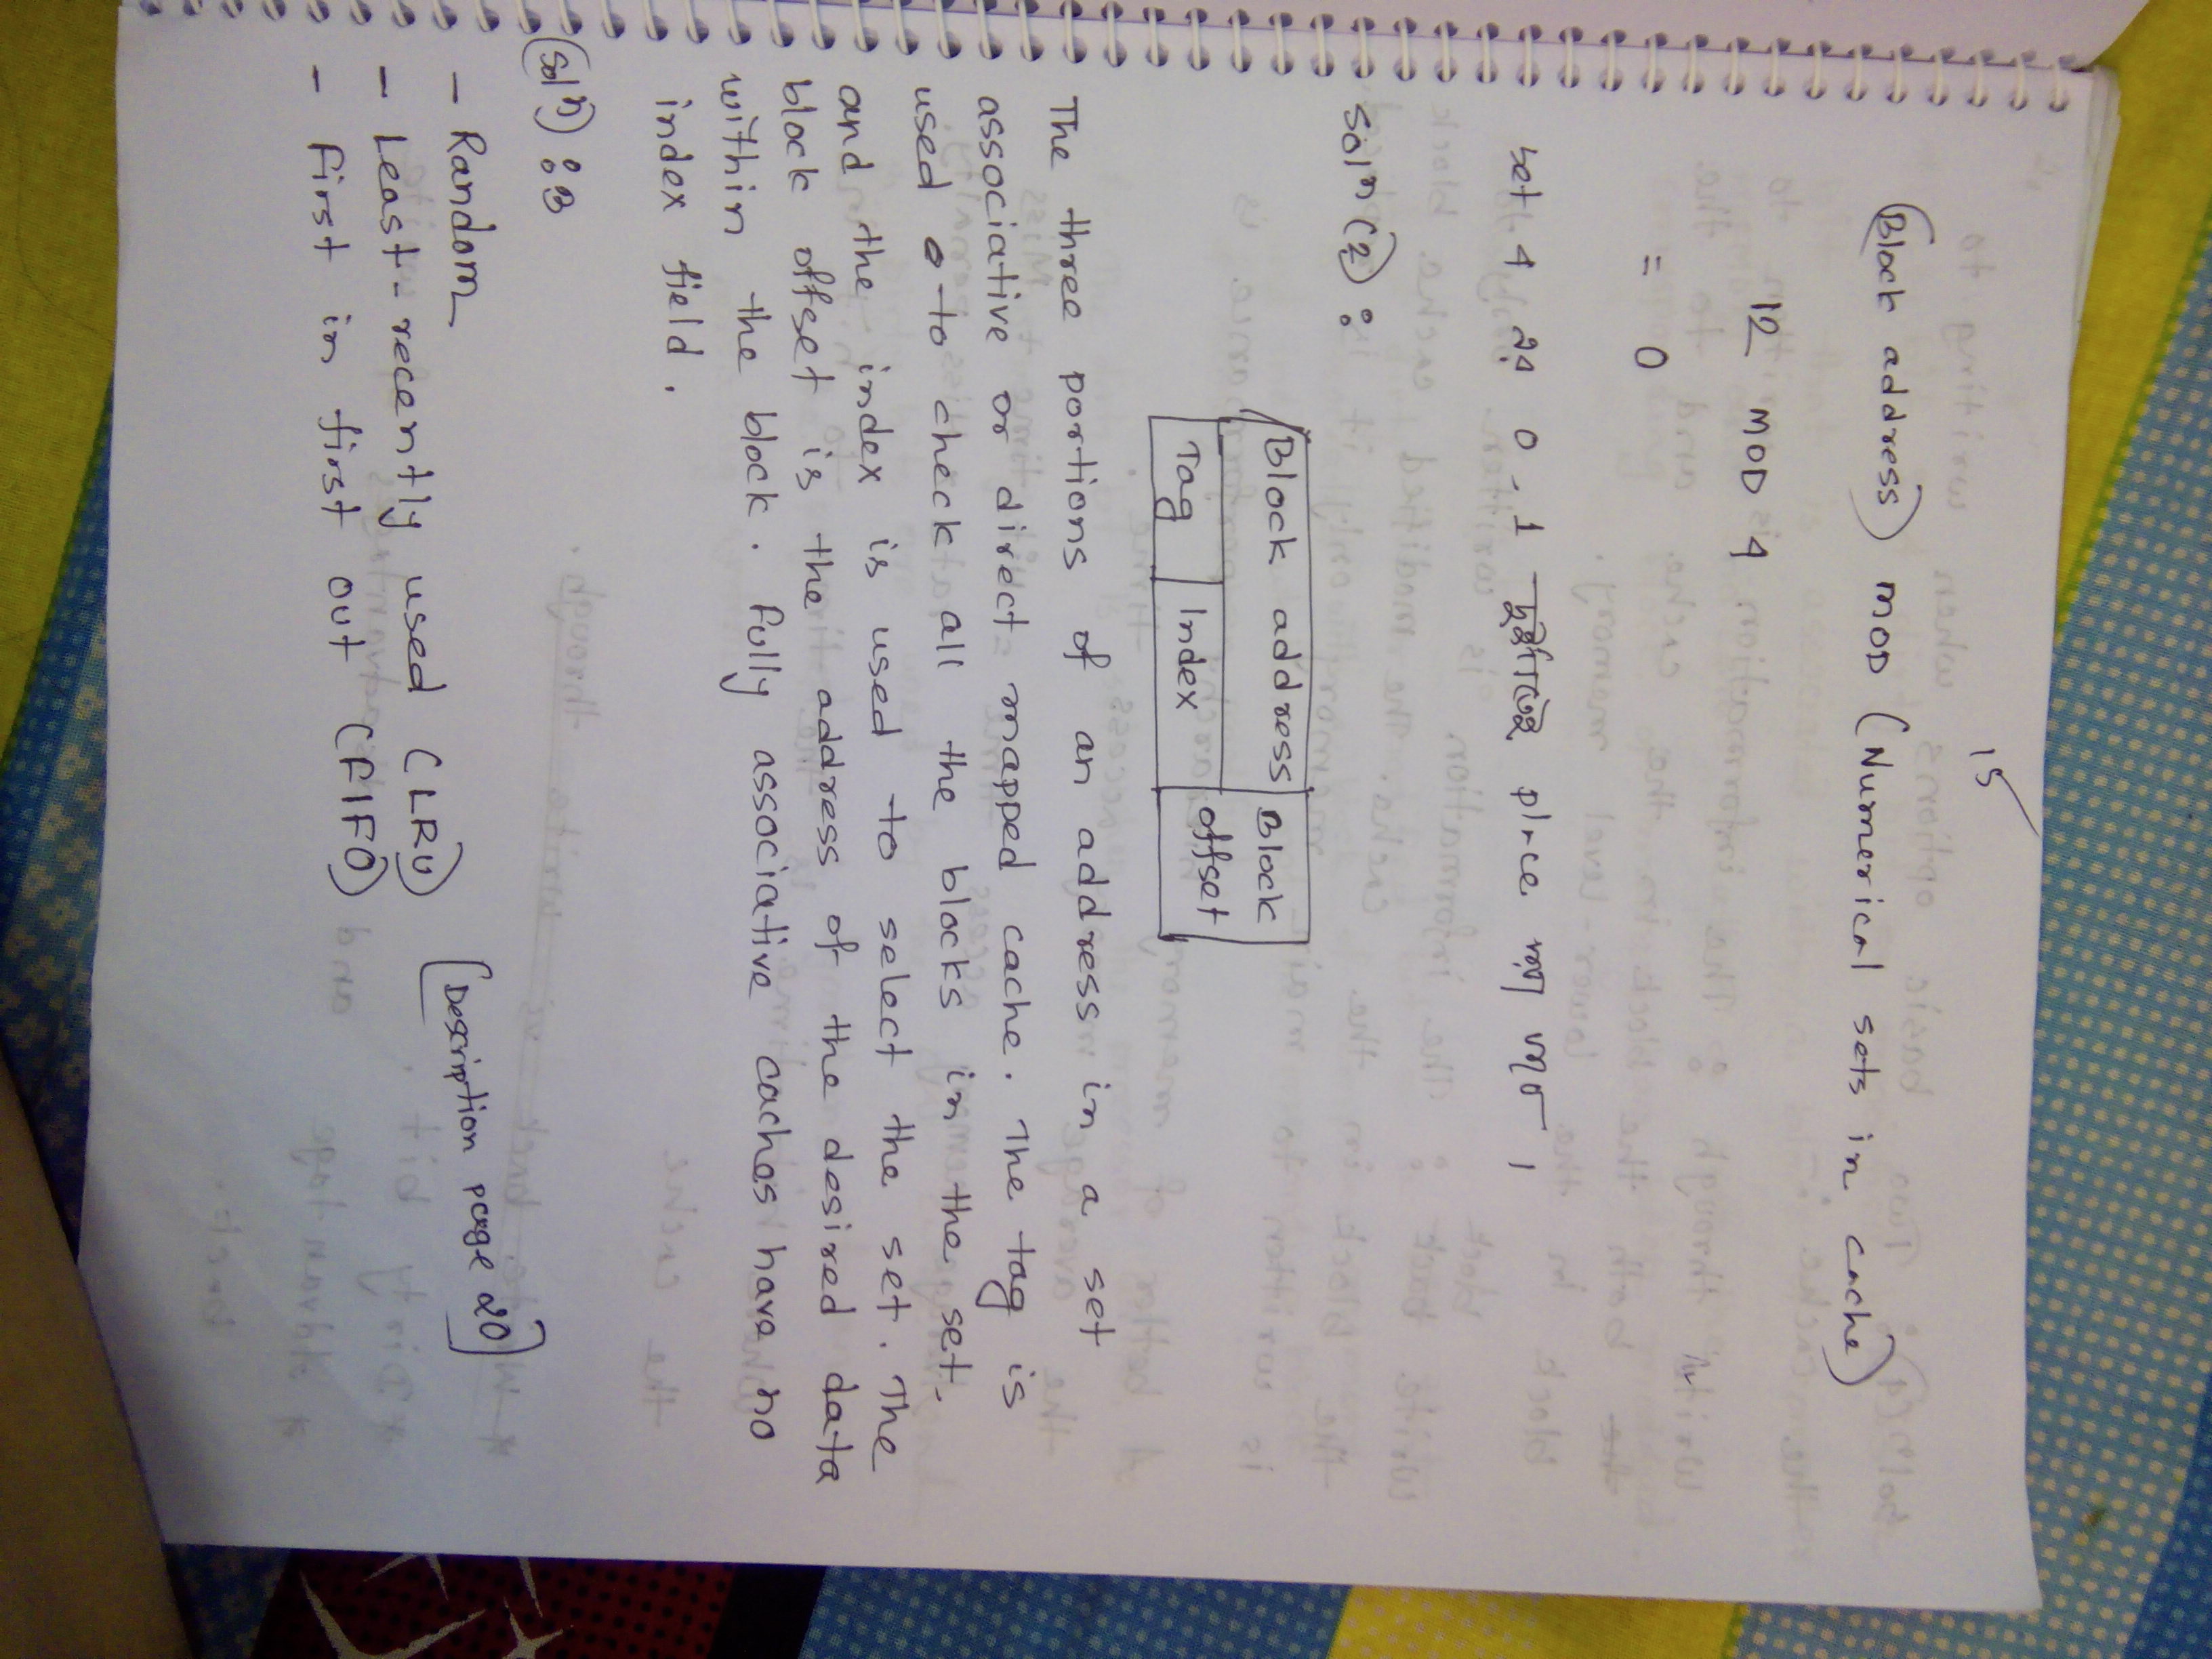 15
(Block address) MOD (Numerical sets in cache)
12 MOD 4
= 0
set 4 এর 0, 1 দুইটাতেই place করা যাবে।
Solⁿ (2) :
Block address
Block
offset
Tag
Index
The three portions of an address in a set
associative or direct mapped cache. The tag is
used to check all the blocks in the set,
and the index is used to select the set. The
block offset is the address of the desired data
within the block. Fully associative caches have no
index field.
(Solⁿ) : 3
- Random
[Description page 20]
- Least-recently used (LRU)
- First in first out (FIFO)